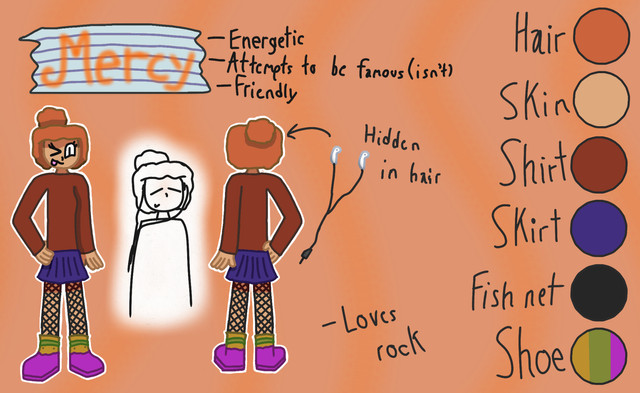 Mercy
- Energetic
- Attempts to be famous (isn't)
- Friendly
Hidden
in hair
- Loves
rock
Hair
Skin
Shirt
Skirt
Fish net
Shoe